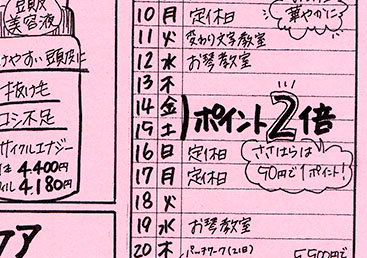 頭皮
美容液
けやすい頭皮に
抜け毛
コシ不足
サイクルエナジー
4.400円
4.180円
ケア
10 月 定休日
華やかに
11 火 変わり文字教室
12 水 お琴教室
13 木
14 金
15 土
ポイント2倍
16 日 定休
17 月 定休
ささはらは
90円で1ポイント!
18 火
19 水 お琴教室
20 木 パッチワーク(2回)
5,500円で